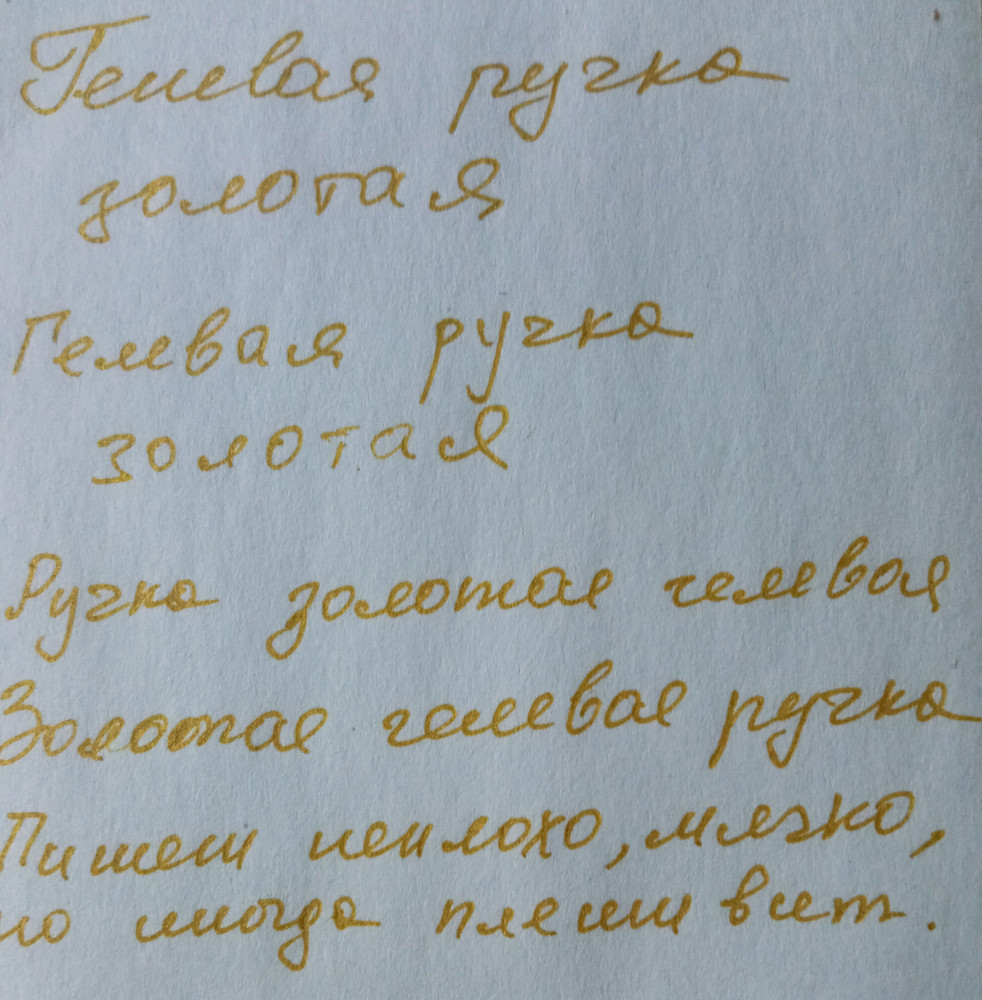 Гелевая ручка
золотая
Гелевая ручка
золотая
Ручка золотая гелевая
Золотая гелевая ручка
Пишет неплохо, мягко,
но иногда